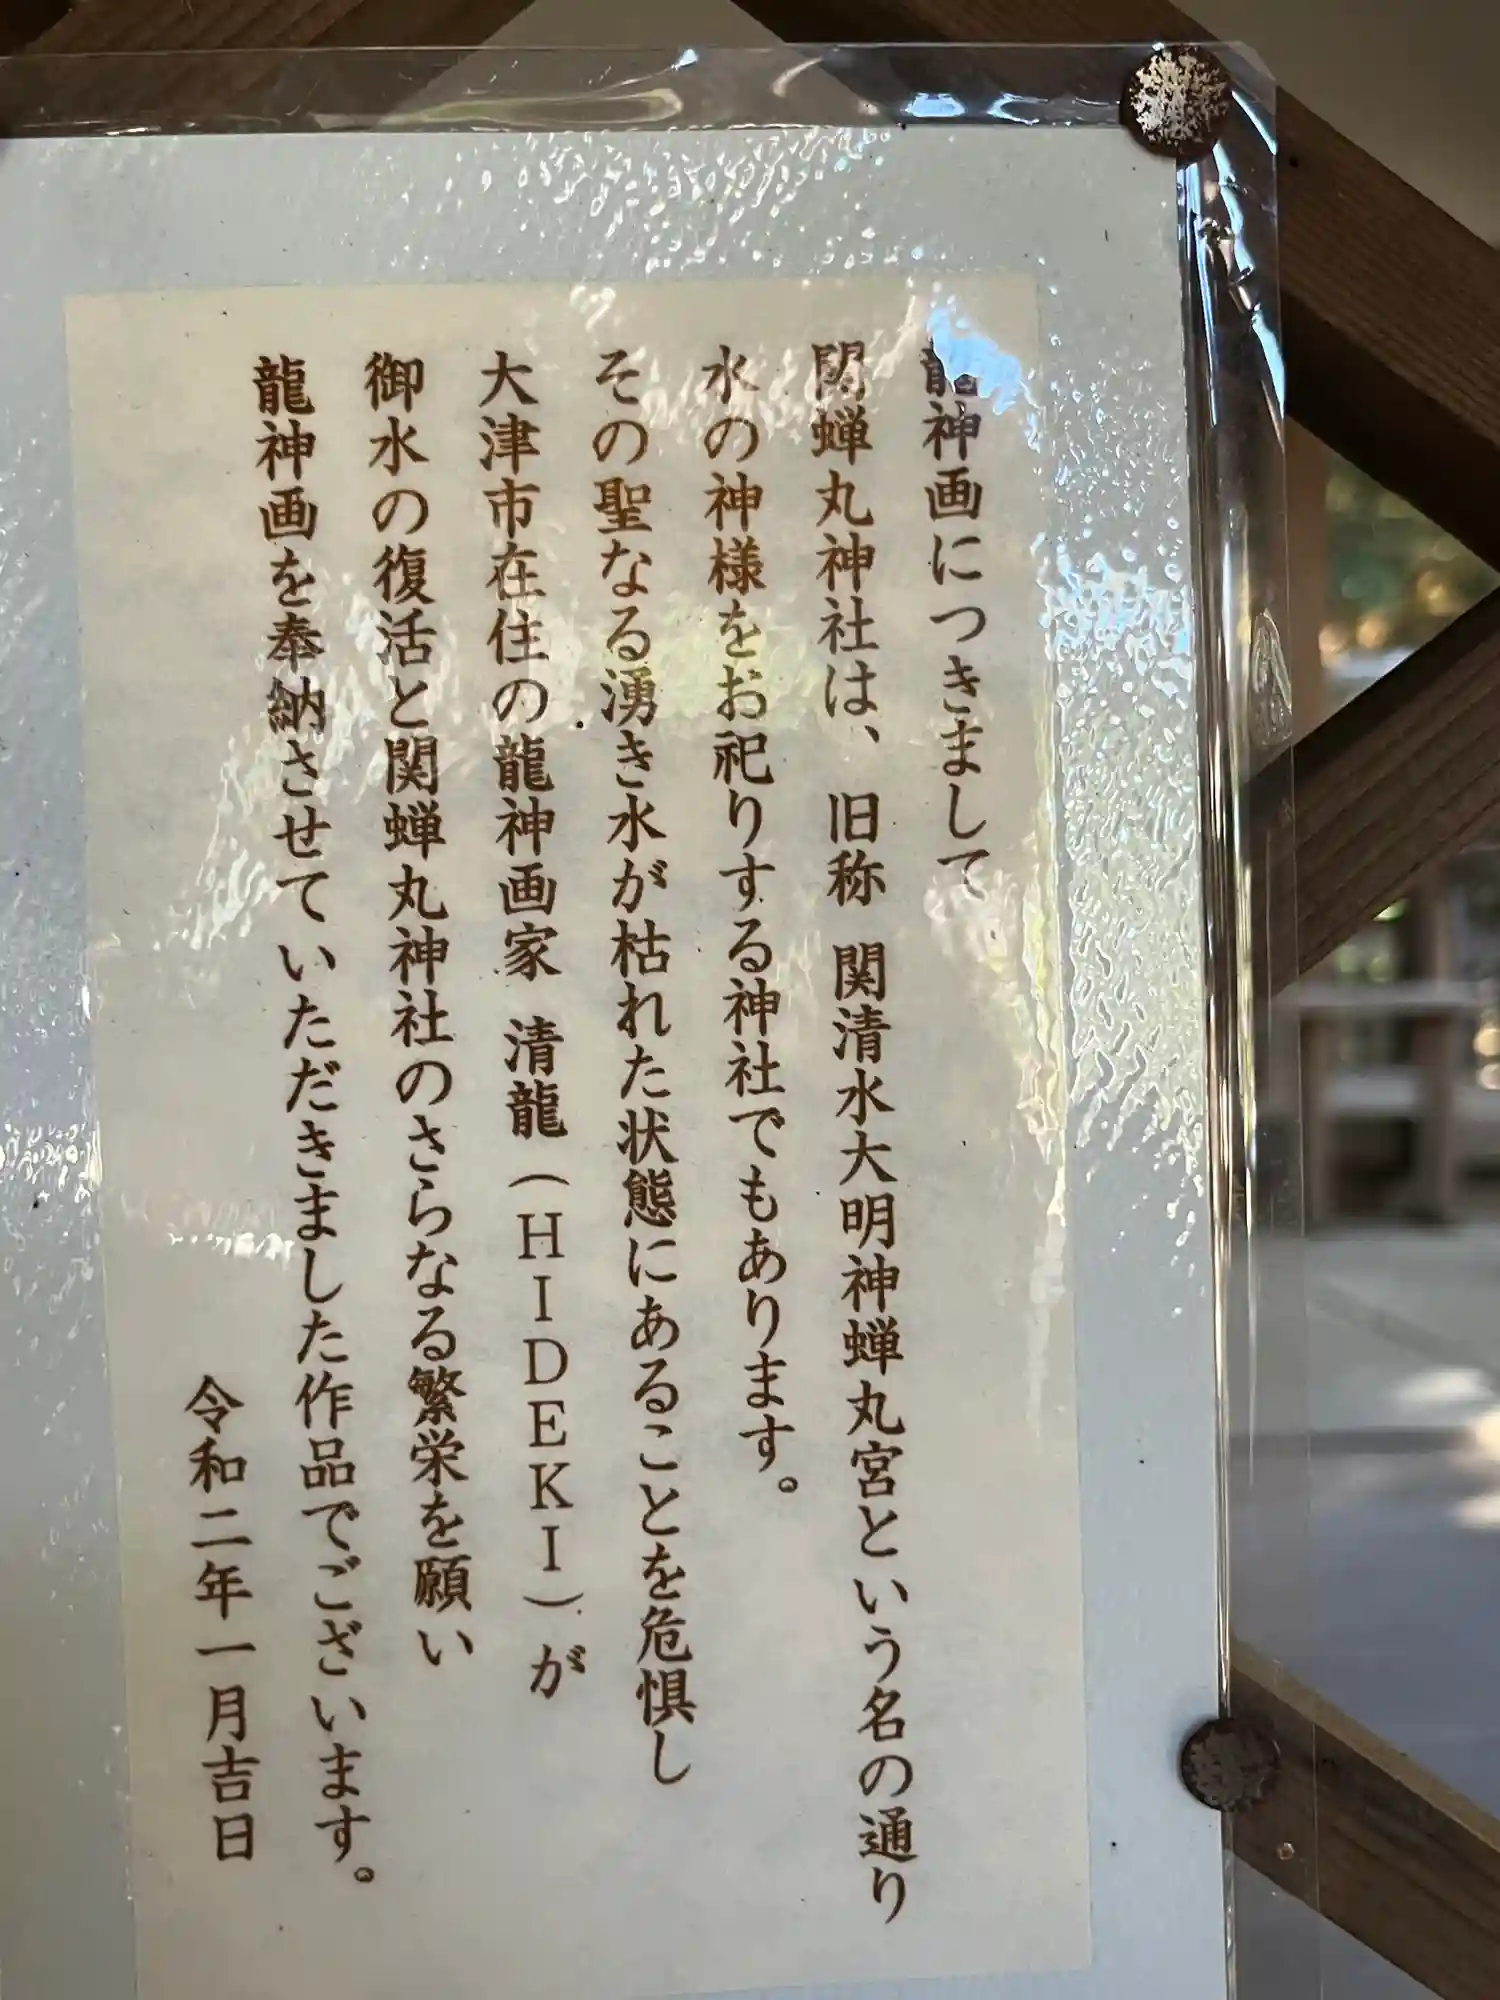 龍神画につきまして
関蝉丸神社は、旧称 関清水大明神蝉丸宮という名の通り
水の神様をお祀りする神社でもあります。
その聖なる湧き水が枯れた状態にあることを危惧し
大津市在住の龍神画家 清龍（HIDEKI）が
御水の復活と関蝉丸神社のさらなる繁栄を願い
龍神画を奉納させていただきました作品でございます。
令和二年一月吉日